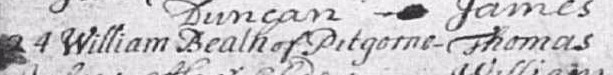 Duncan - James
24 William Bealh of Pitgorne - Thomas
William